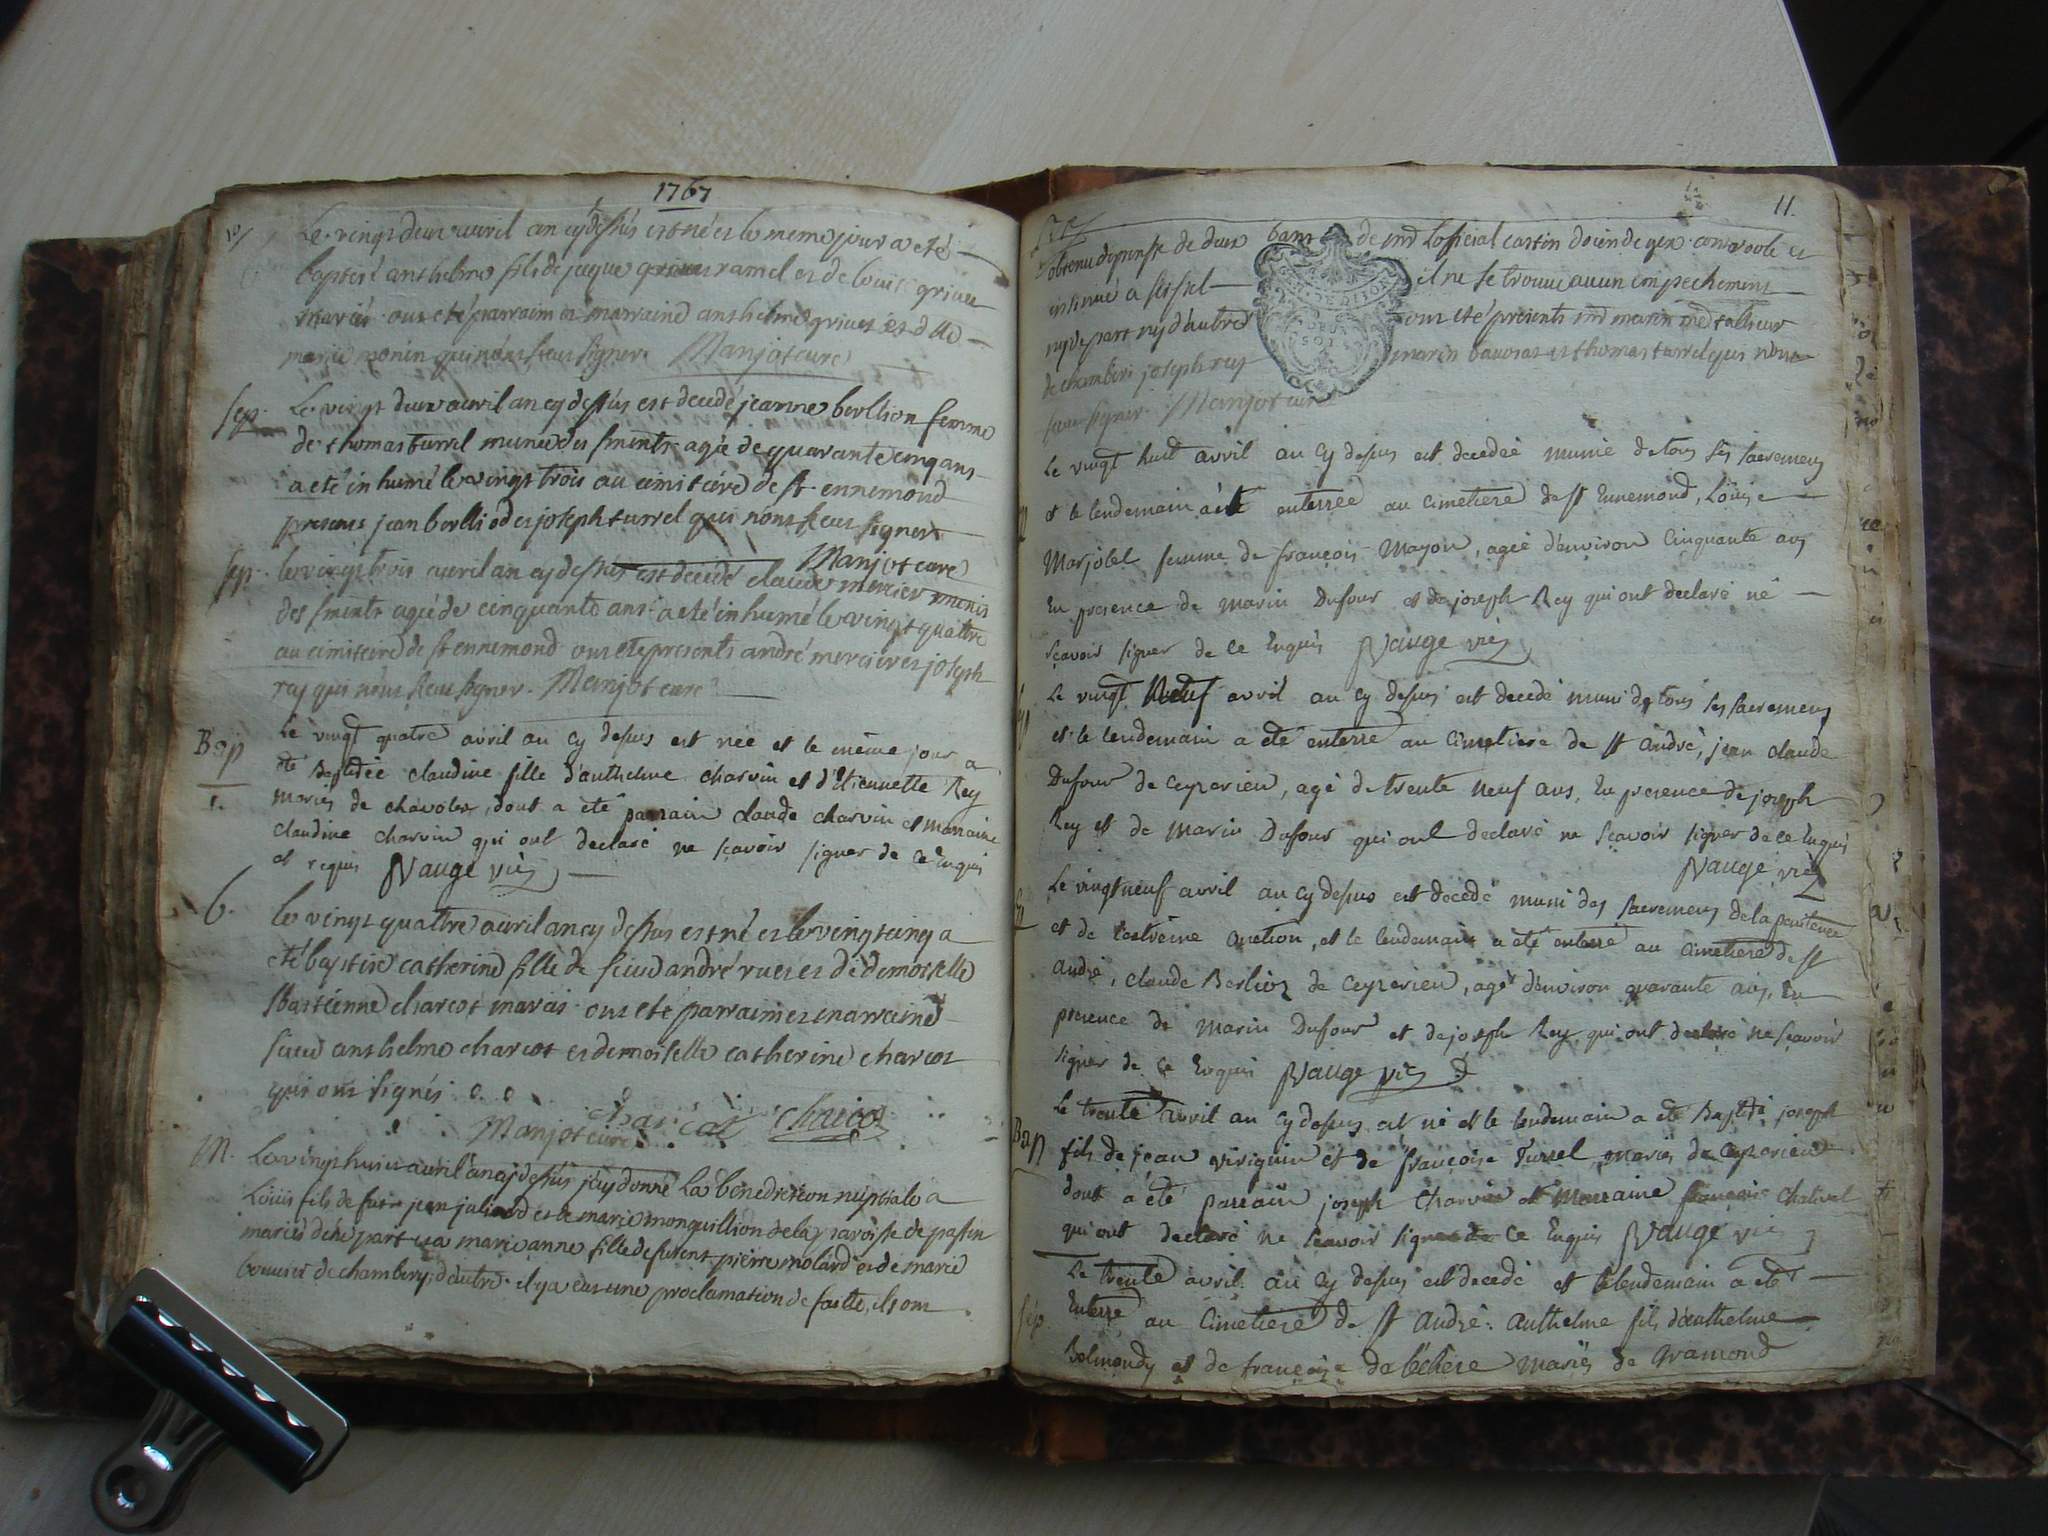 1767
Le vingt deux avril an cy dessus est né et le meme jour a eté
baptisé anthelme fils de jaque ramel et de Louise grivet
mariés ont eté parrain et marraine anthelme grivet et dlle
marie monin qui n'ont sceu signer Manjot curé
sep. Le vingt deux avril an cy dessus est decedé jeanne berllion femme
de thomas turrel munie des smints agée de quarante cinq ans
a eté inhumé le vingt trois au cimitiére de st ennemond
presents jean berlliod et joseph turrel qui n'ont sceus signer
Manjot curé
sep. le vingt trois avril an cy dessus est decedé claude mercier munis
des smints agée de cinquante ans a eté inhumé le vingt quattre
au cimitiére de st ennemond ont eté presents andré mercier et joseph
rey qui n'ont sceu signer. Manjot curé
Bap Le vingt quatre avril an cy desus est née et le même jour a
été Baptisée claudine fille d'anthelme charvin et d'Etiennette Rey
1. mariés de chavolex, dont a été parrain claude charvin et marraine
claudine charvin qui ont declaré ne scavoir signer de ce enquis
et requis Nauge vic
b. le vingt quattre avril an cy dessus est né et le vingt cinq a
eté baptisé catherine fille de sieur andré ruet et de demoiselle
Bastienne charcot mariés ont eté parrain et marraine
sieur anthelme charcot et demoiselle catherine charcot
qui ont signés
Manjot curé charcot charcot
M. Le vingt huit avril an cy dessus j'ay donné La bénédiction nuptiale a
Louis fils de fut jean juliand et de marie monquillion de la paroisse de passin
mariés d'une part et a marie anne fille de furent pierre molard et de marie
bouvier de chambery, d'autre. il y a eut une proclamation de faitte, ils ont
11.
obtenu dispense de deux bans de mr Lofficial castin doien de gex controole et
insinué a seissel il ne se trouve aucun empechement
ny de part ny d'autre ont eté présents
de chambery joseph rey marin et thomas turrel qui n'ont
sceu signer. Manjot curé
Le vingt huit avril an cy desus est decedée munie de tous ses sacremens
et le lendemain a été enterrée au cimetiere de st Ennemond, Louise
Marjolet femme de françois Mayon, agée d'environ cinquante ans
En presence de marin Dufour et de joseph Rey qui ont declaré ne
scavoir signer de ce Enquis Nauge vic
Le vingt Neuf avril an cy desus est decedé muni de tous ses sacremens
et le lendemain a eté enterré au cimetiere de st andré, jean claude
Dufour de ceyzerieu, agé de trente neuf ans, En presence de joseph
Rey et de marin Dufour qui ont declaré ne scavoir signer de ce Enquis
Nauge vic
Le vingt neuf avril an cy desus est decedé muni des sacremens de la penitence
et de l'extrême onction, et le lendemain a eté enterré au cimetiere de st
andré, claude Berlioz de ceyzerieu, agé d'environ quarante ans, En
presence de marin Dufour et de joseph Rey qui ont declaré ne scavoir
signer de ce Enquis Nauge vic
Bap Le trente avril an cy desus est né et le lendemain a eté Baptisé joseph
fils de jean viviguin et de françoise Turrel mariés de ceyzerieu
dont a été parrain joseph charvin et marraine françoise chatival
qui ont declaré ne scavoir signer de ce Enquis Nauge vic
Le trente avril an cy desus est decedé et le lendemain a eté
sep. Enterré au cimetiere de st andré, anthelme fils d'anthelme
Bolmondy et de françoise de béliere mariés de vramond